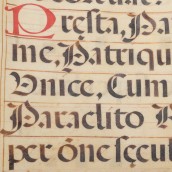 Presta, Pa
me, Patriqu
Vnice, Cum
Paraclito R
per õne sęcul